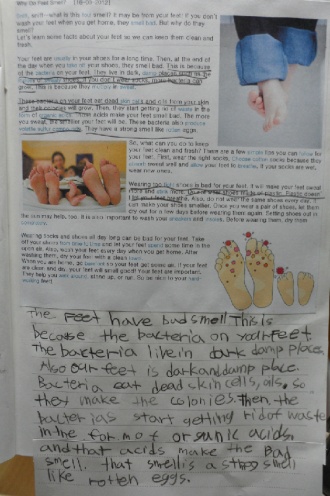 Why Do Feet Smell?
Ieek, yuck—what is this bad smell? It may be from your feet! If you don't
wash your feet when you get home, they smell bad. But why do they
smell?
Let's learn some facts about your feet so we can keep them clean and
fresh.
Your feet are usually in your shoes for a long time. Then, at the end of
the day when you take off your shoes, they smell bad. This is because
of the bacteria on your feet. They live in dark, damp places such as
This is because they
These bacteria on your feet eat dead skin cells and oils from your skin
and their colonies will grow. Then, they start getting rid of waste in the
form of organic acids. Those acids make your feet smell bad. The more
you sweat, the smellier your feet will be. These bacteria also produce
volatile sulfur compounds. They have a strong smell like rotten eggs.
So, what can you do to keep
your feet clean and fresh? There are a few simple tips you can follow for
your feet. First, wear the right socks. Choose cotton socks because they
absorb sweat well and allow your feet to breathe. If your socks are wet,
wear new ones.
Wearing tight shoes is bad for your feet. It will make your feet sweat
Also, do not wear the same shoes every day. It
can make your shoes smellier. Once you wear a pair of shoes, let them
dry out for a few days before wearing them again. Setting shoes out in
the sun may help, too. It is also important to wash your sneakers and shoes. Before wearing them, dry them
completely.
Wearing socks and shoes all day long can be bad for your feet. Take
off your shoes from time to time and let your feet spend some time in the
fresh air. Also, wash your feet every day when you get home. After
washing them, dry your feet with a clean towel.
When you are home, go barefoot so your feet get some air. If your feet
are clean and dry, your feet will smell good! Your feet are important.
They help you walk around, stand up, or run. So be nice to your hard-
working feet!
The Feet have bud smell This is
because the bacteria on your Feet
The bacteria like in dark damp places
Also our feet is dark and damp place.
Bacteria eat dead skin cells, oils. So
they make the colonies. Then, the
bacterias start getting rid of waste
in the form of orsunic acids.
and that acids make the Bad
smell. that smell is a strog smell
like rotten eggs.